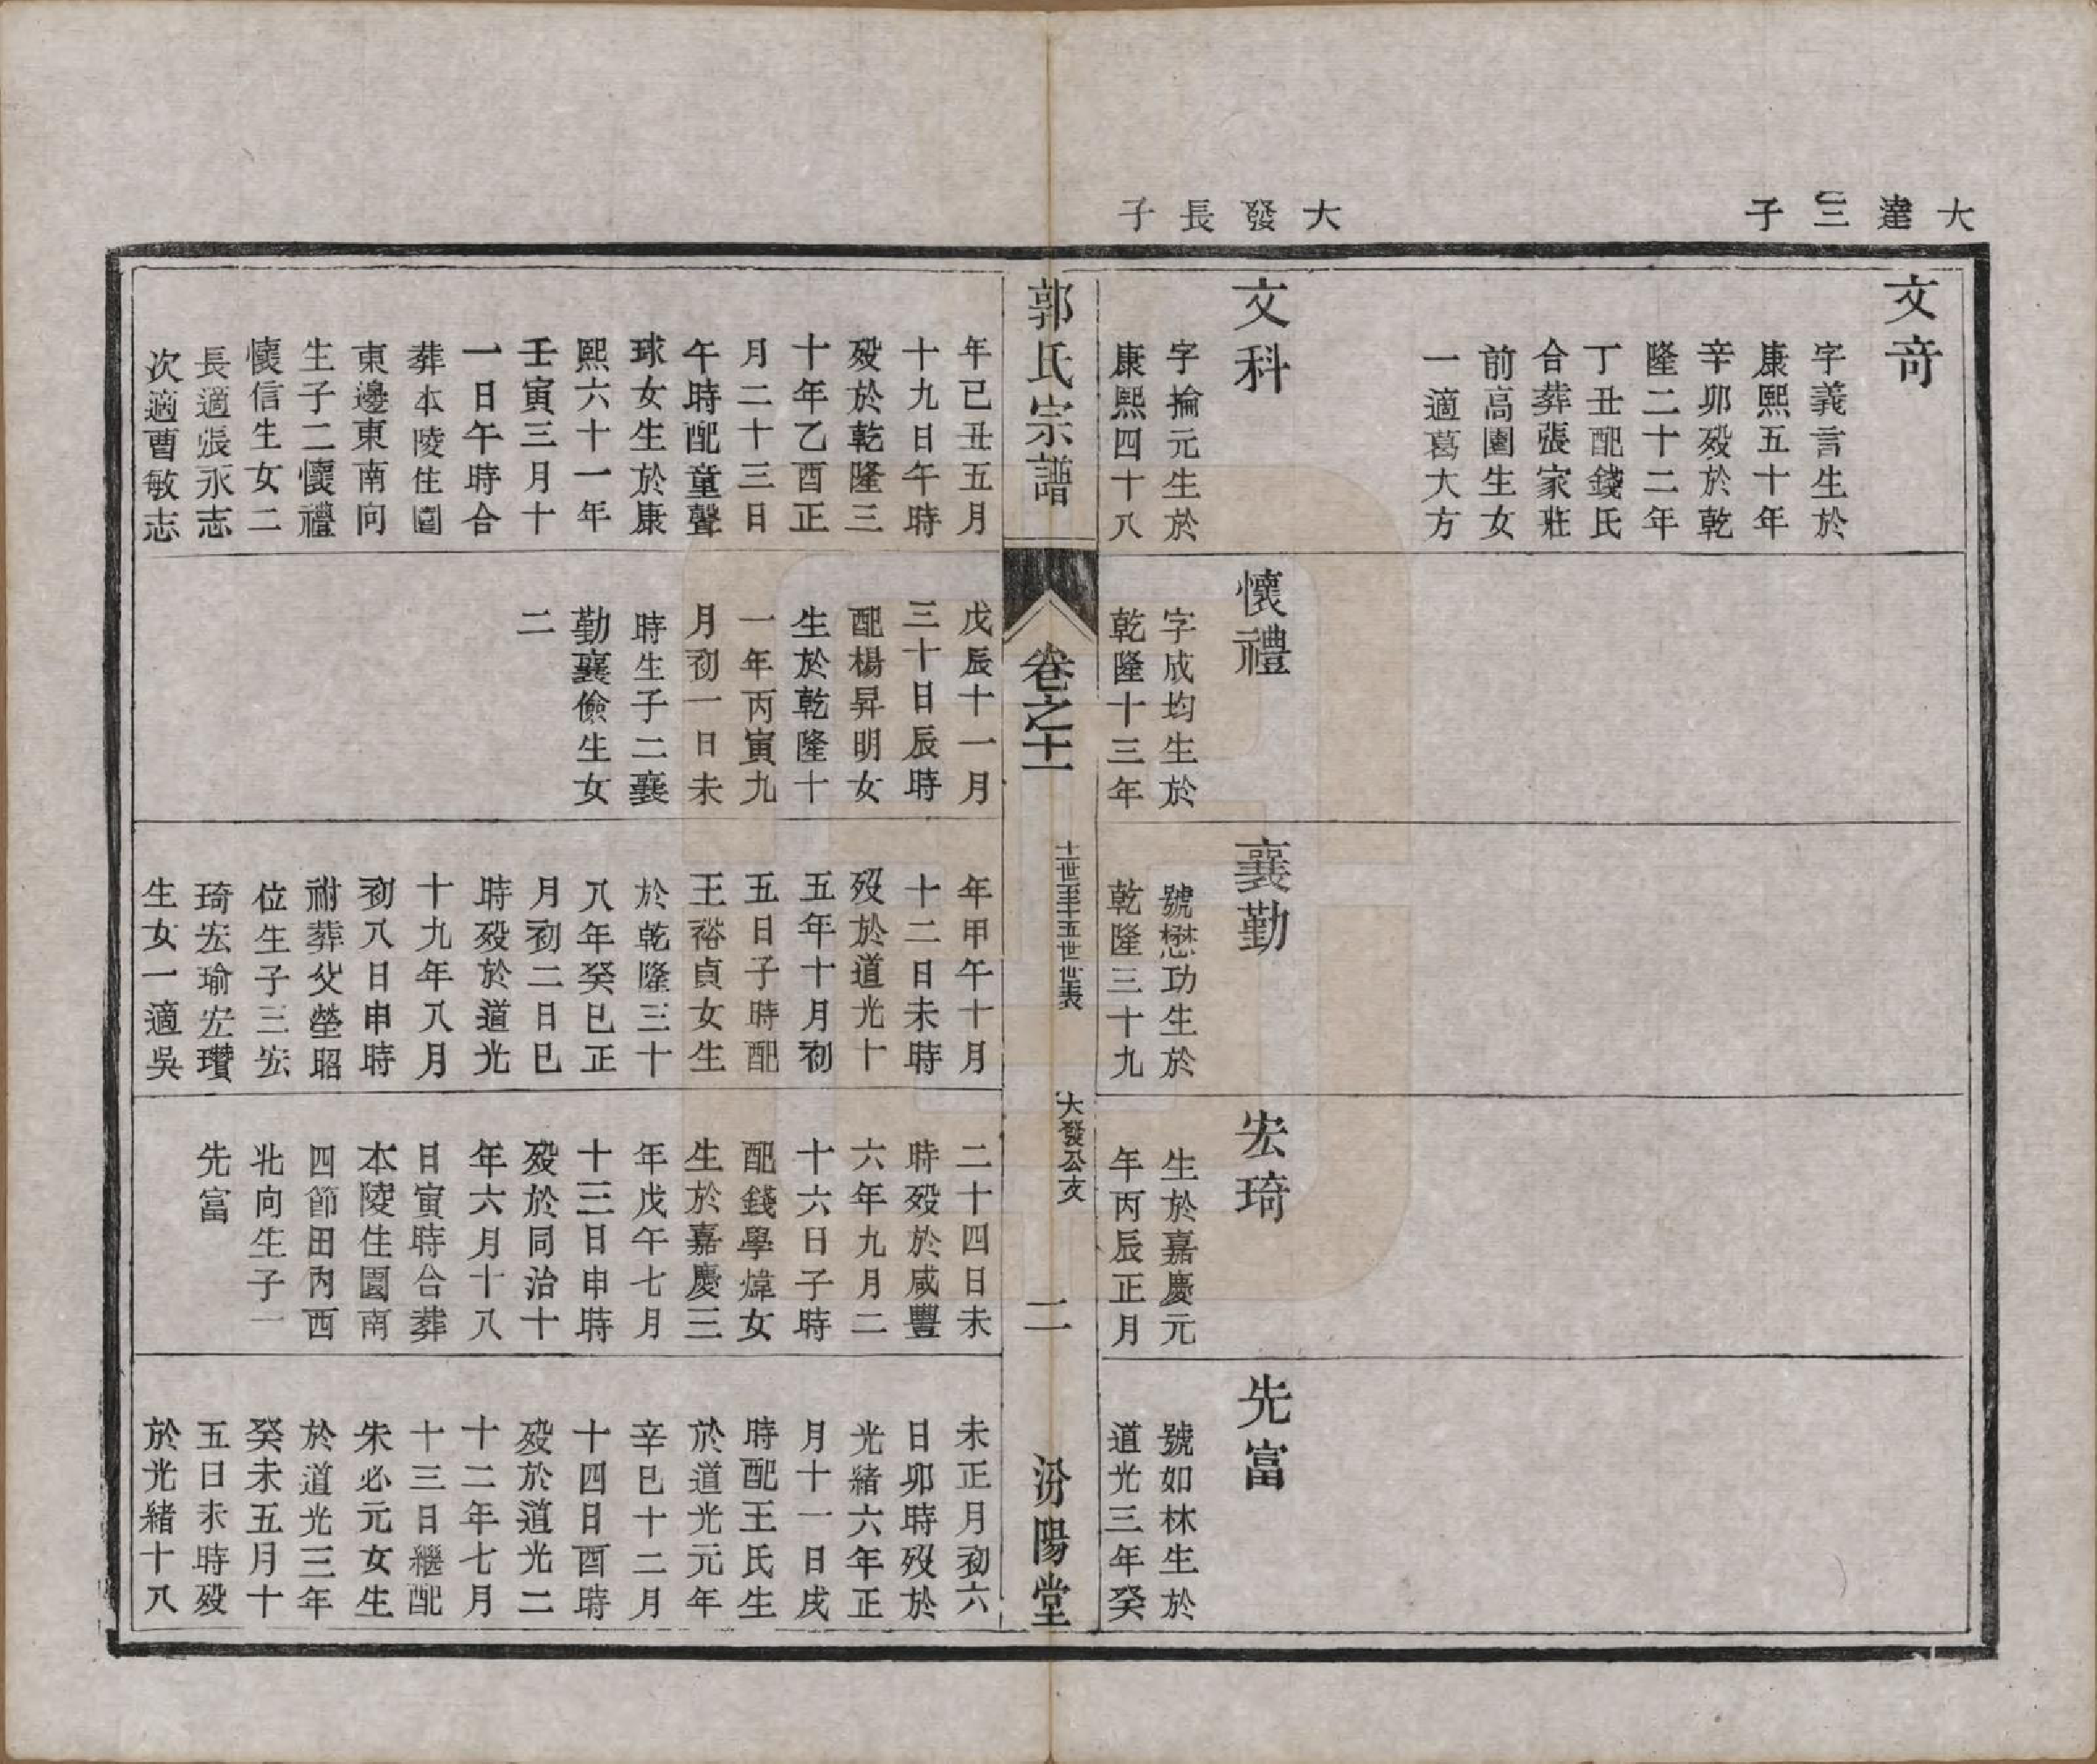 大達三子
大發長子
文竒
字義言生於
康熙五十年
辛卯殁於乾
隆二十二年
丁丑配錢氏
合葬張家莊
前高園生女
一適葛大方
文科
字掄元生於
康熙四十八
懷禮
字成均生於
乾隆十三年
襄勤
號懋功生於
乾隆三十九
宏琦
生於嘉慶元
年丙辰正月
先富
號如林生於
道光三年癸
郭氏宗譜
卷之十一
十一世至十五世世表
大發公支
二
汾陽堂
年已丑五月
十九日午時
殁於乾隆三
十年乙酉正
月二十三日
午時配童聲
球女生於康
熙六十一年
壬寅三月十
一日午時合
葬本陵住園
東邊東南向
生子二懷禮
懷信生女二
長適張永志
次適曹敏志
戊辰十一月
三十日辰時
配楊昇明女
生於乾隆十
一年丙寅九
月初一日未
時生子二襄
勤襄儉生女
二
年甲午十月
十二日未時
殁於道光十
五年十月初
五日子時配
王裕貞女生
於乾隆三十
八年癸巳正
月初二日巳
時殁於道光
十九年八月
初八日申時
祔葬父塋昭
位生子三宏
琦宏瑜宏瓚
生女一適吳
二十四日未
時殁於咸豐
六年九月二
十六日子時
配錢學煒女
生於嘉慶三
年戊午七月
十三日申時
殁於同治十
年六月十八
日寅時合葬
本陵住園南
四節田內西
北向生子一
先富
未正月初六
日卯時殁於
光緒六年正
月十一日戌
時配王氏生
於道光元年
辛巳十二月
十四日酉時
殁於道光二
十二年七月
十三日繼配
朱必元女生
於道光三年
癸未五月十
五日未時殁
於光緒十八